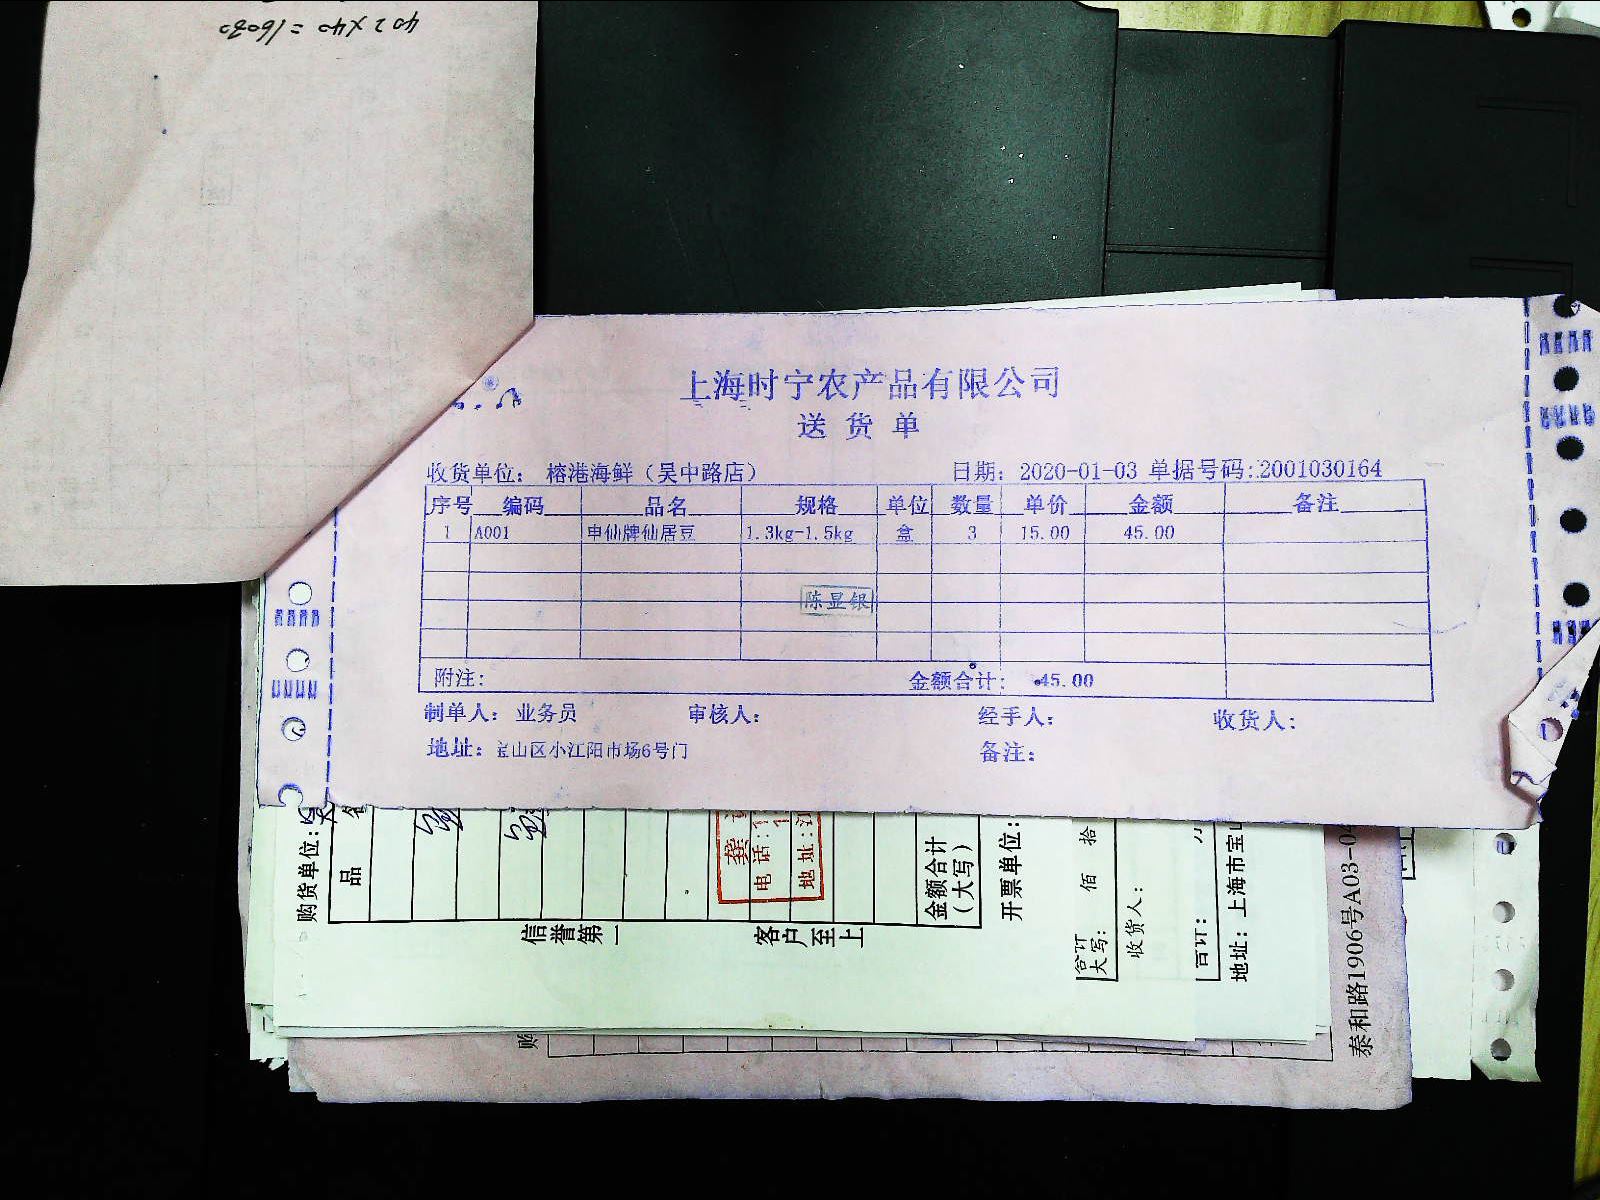 402×40=16080
上海时宁农产品有限公司
送货单
收货单位: 榕港海鲜(吴中路店) 日期: 2020-01-03 单据号码:2001030164
序号 编码 品名 规格 单位 数量 单价 金额 备注
1 A001 申仙牌仙居豆 1.3kg-1.5kg 盒 3 15.00 45.00
陈显银
附注: 金额合计: 45.00
制单人: 业务员 审核人: 经手人: 收货人:
地址: 宝山区小江阳市场6号门 备注:
购货单位:
品名
信誉第一
客户至上
龚
电话:1
地址:江
金额合计
(大写)
开票单位:
合计
大写: 佰 拾
收货人:
合计:
地址: 上海市宝山
泰和路1906号A03-04
购